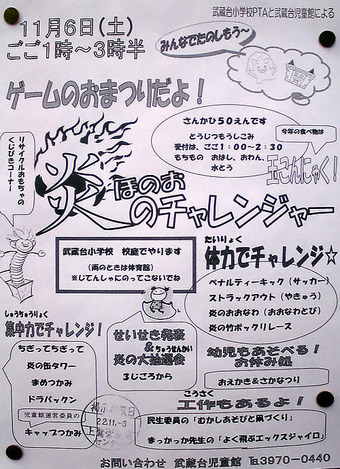 武蔵台小学校PTAと武蔵台児童館による
11月6日(土)
ごご1時～3時半
みんなでたのしもう～
ゲームのおまつりだよ！
さんかひ50えんです
とうじつもうしこみ
受付は、ごご1:00～2:30
もちもの　おはし、おわん、
水とう
今年の食べ物は
玉こんにゃく！
リサイクルおもちゃの
くじびきコーナー
炎
ほのお
のチャレンジャー
武蔵台小学校　校庭でやります
(雨のときは体育館)
※じてんしゃにのってこないでね
たいりょく
体力でチャレンジ☆
ペナルティーキック（サッカー）
ストラックアウト（やきゅう）
炎のおおなわ（おおなわとび）
炎の竹ポックリレース
しゅうちゅうりょく
集中力でチャレンジ！
ちぎってちぎって
炎の缶タワー
まめつかみ
ドラパッケン
児童館運営委員の
キャップつかみ
せいせき発表
&ちゅうせんかい
炎の大抽選会
3じごろから
幼児もあそべる！
お休み処
おえかき&さかなつり
こうさく
工作もあるよ！
民生委員の「むかしあそびと凧づくり」
まっかっか先生の「よく飛ぶエックスジャイロ」
お問い合わせ　武蔵台児童館　Tel3970-0440